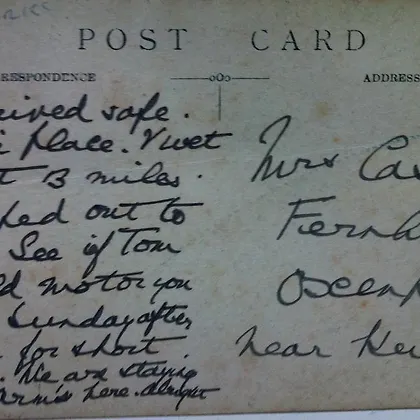 POST CARD
RESPONDENCE
ADDRESS
ived safe.
place. V wet
13 miles.
ked out to
See if Tom
ld motor you
Sunday after
for short.
We are staying
here. alright
Mrs Ca
Fernh
Oscenp
near Ke